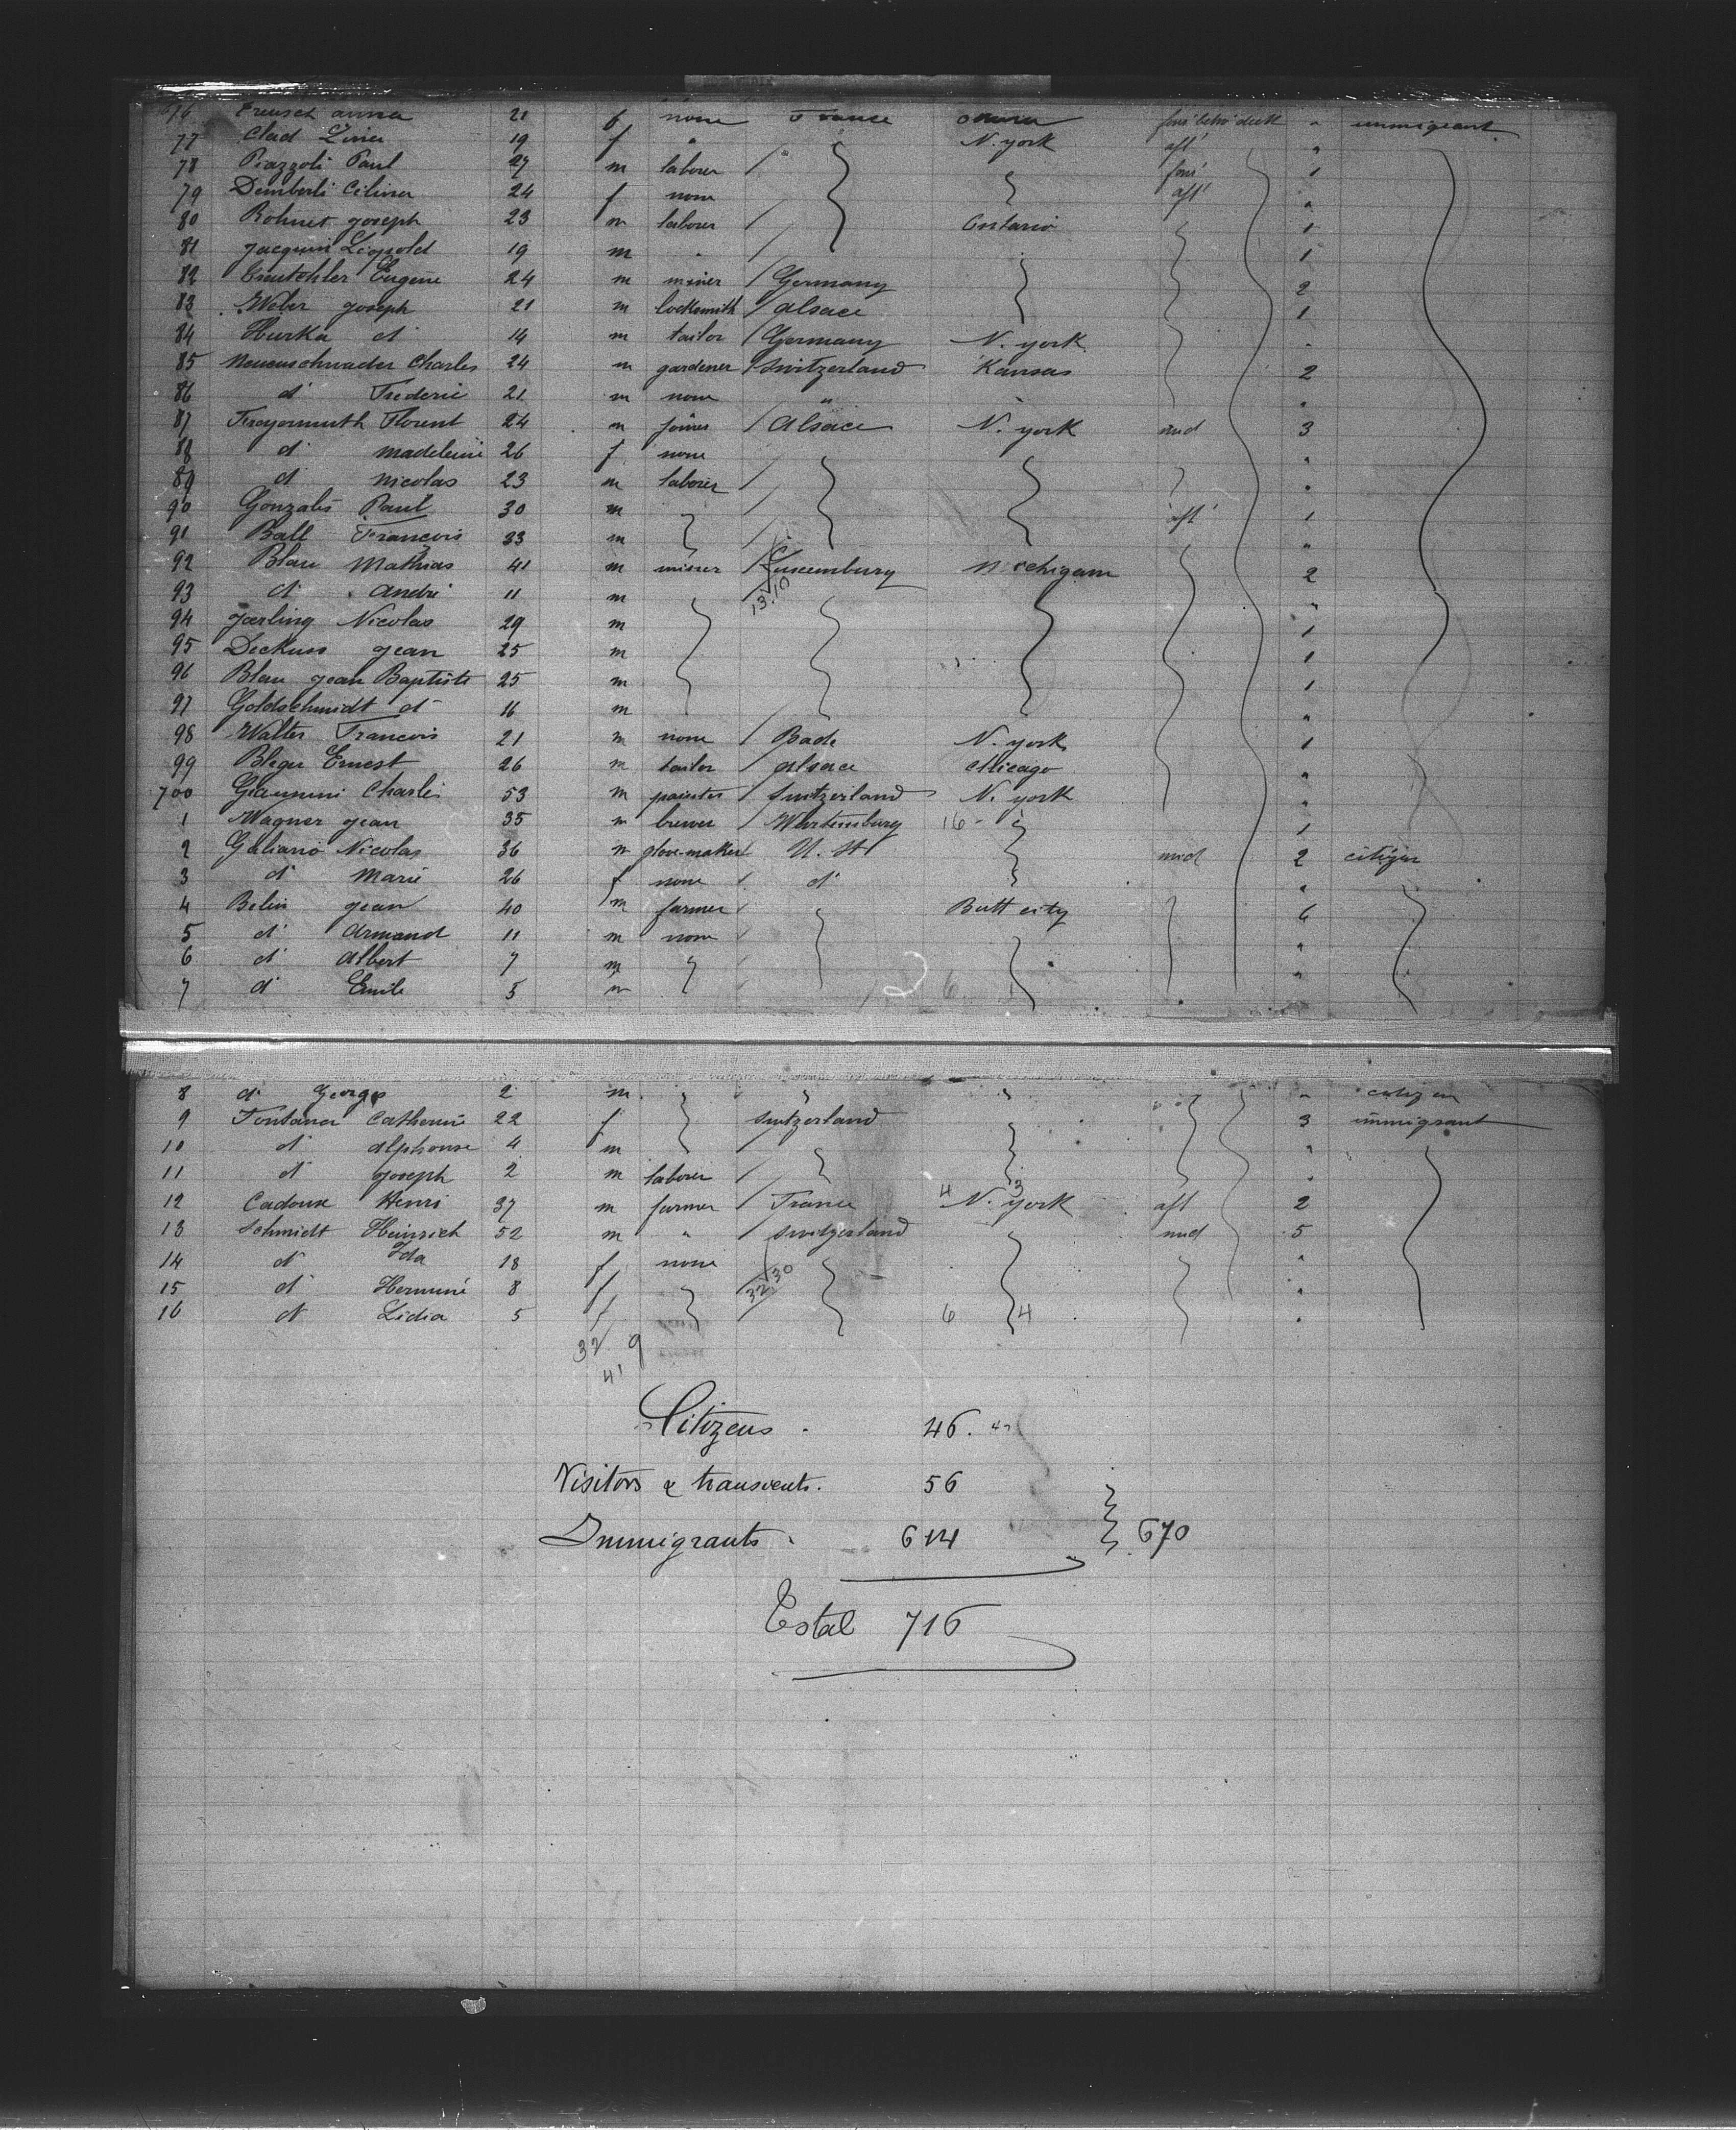 676 Freusch anna 21 f none France fore betw deck " immigrant
77 Clad Line 19 f " " N. york aft "
78 Piazzoli Paul 27 m laborer / fore 1
79 Demberli Celina 24 f none aft "
80 Rohmet joseph 23 m laborer / Ontario 1
81 jacquin Léopold 19 m " / 1
82 Eugène 24 m miner / Germany 2
83 Weber joseph 21 m locksmith / alsace 1
84 Hurka d° 14 m tailor / Germany N. york "
85 Neuenschwader Charles 24 m gardener / Switzerland Kansas 2
86 d° Frederic 21 m none " " "
87 Freyermuth Florent 24 m joiner / alsace N. york mid 3
88 d° madeleine 26 f none "
89 d° nicolas 23 m laborer / "
90 Gonzalés Paul 30 m / aft 1
91 Ball François 33 m / "
92 Blau Mathias 41 m miner / Luxemburg Michigam 2
93 d° André 11 m 13.10 "
94 Jarling Nicolas 29 m 1
95 Deckuss jean 25 m 1
96 Blau jean Baptiste 25 m 1
97 Goldschmidt d° 16 m "
98 Walter Francois 21 m none / Bade N. york 1
99 Bleger Ernest 26 m tailor / alsace chicago "
700 Giannini Charles 53 m painter / Switzerland N. york "
1 Wagner jean 35 m brewer / Wurtemburg 16 - 1
2 Galiano Nicolas 36 m glove-maker U. St mid 2 citizen
3 d° Marie 26 f none d° "
4 Belin jean 40 m farmer Butt city 4
5 d° Armand 11 m none "
6 d° Albert 7 m "
7 d° Emile 5 m 6
8 d° George 2 m " " " " citizen
9 Fontana Catherine 22 f Switzerland 3 immigrant
10 d° alphonse 4 m "
11 d° joseph 2 m laborer / 3 "
12 Cadoux Henri 37 m farmer / France 4 N. york aft 2
13 Schmidt Heinrich 52 m " / Switzerland mid 5
14 d° Ida 18 f none "
15 d° Hermine 8 f 32.30 "
16 d° Lidia 5 f 6 4 "
32 9
41
Citizens . 46.
Visitors & transients. 56
Immigrants . 614 670
Total 716